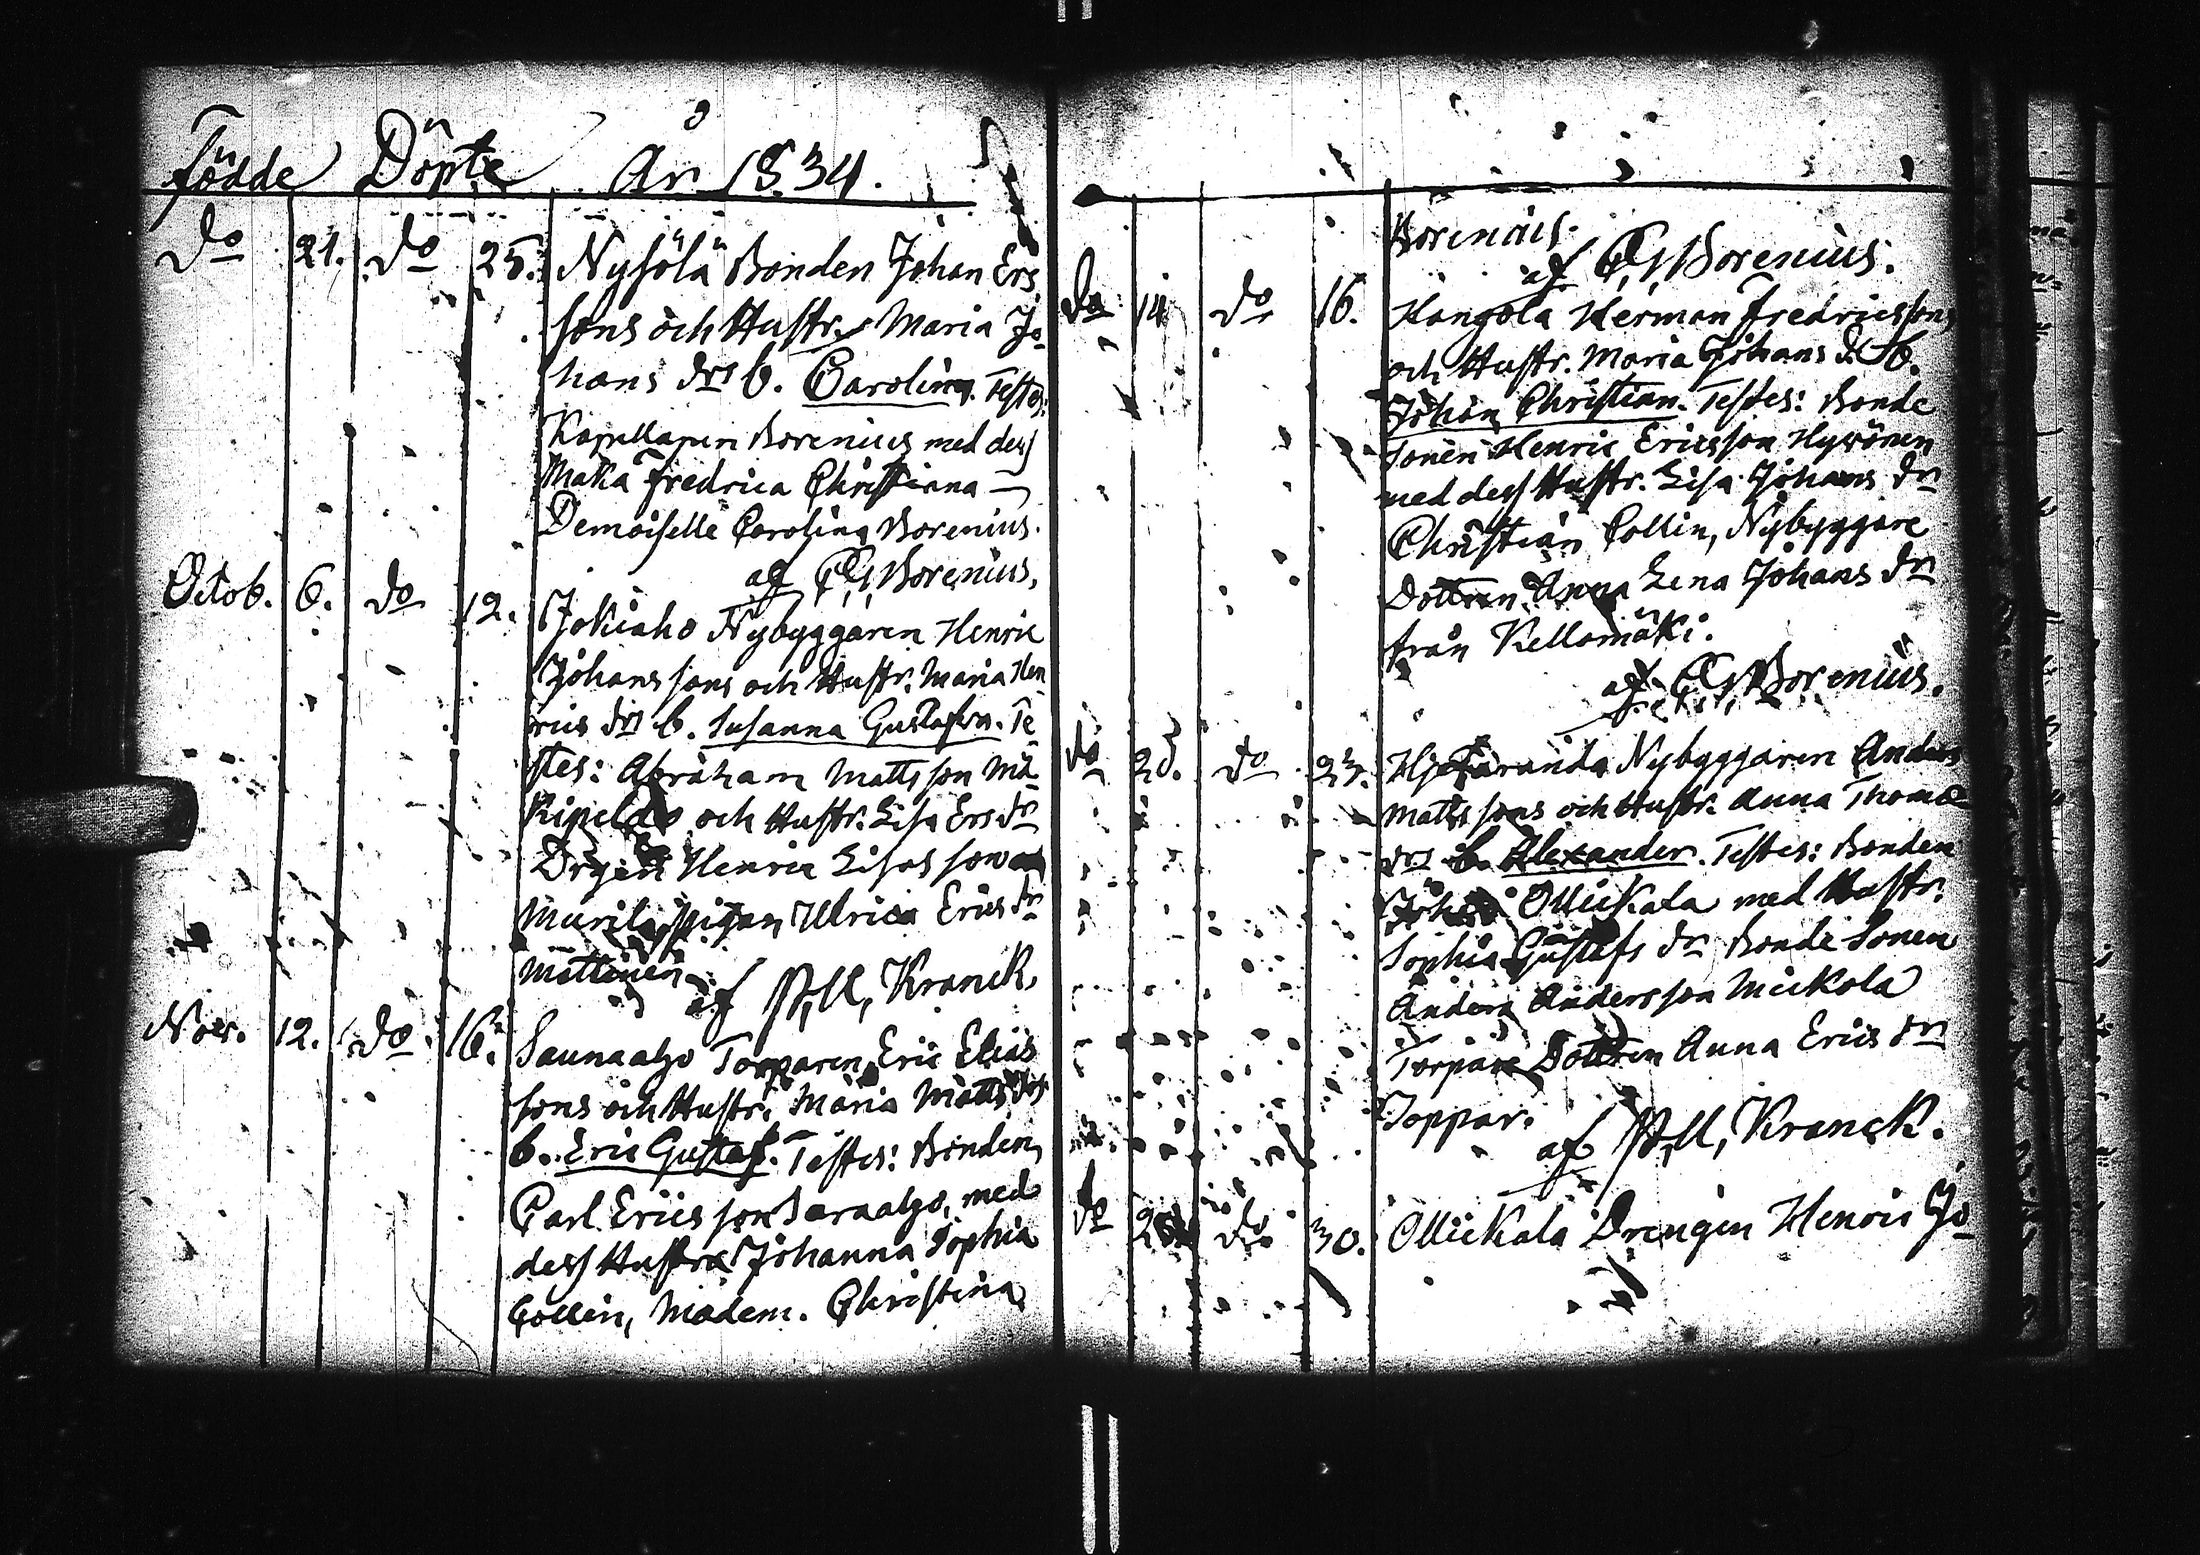 Födde Döpte År 1834.
Do 21. Do 25. Nysölä Bonden Johan Ers
sons och Hustr. Maria Jo-
hans drs b. Carolina. Testes:
Kapellanen Borenius med dess
Maka Fredrica Christina —
Demoiselle Carolina Borenius.
af C. G. Borenius.
Octob. 6. Do 12. Jokiaho Nybyggaren Henric
Johans sons och Hustr. Maria Hen
rics drs b. Susanna Gustafva. Te
stes: Abraham Matts son Mä
Kipelto och Hustr. Lisa Ers dr
Drgen Henric Lisas son
Murila, pigan Ulrica Erics dr
Mattinen
af P. M. Kranck.
Nov. 12. Do 16. Saunaalho Torparen Eric Elias
sons och Hustr. Maria Matts drs
b. Eric Gustaf. Testes: Bonden
Carl Erics son Saraalho, med
dess Hustru Johanna Sophia
Collin, Madem. Christina
Borenius.
af C. G. Borenius.
Do 14 Do 16. Kangola Herman Fredricssons
och Hustr. Maria Johans d. b.
Johan Christian. Testes: Bonde
Sonen Henric Ericsson Hyvönen
med dess Hustr. Lisa Johans dr
Christian Collin, Nybyggare
Dottren Anna Lena Johans dr
från Kellomäki.
af C. G. Borenius.
Do 20. Do 23. Hjetaranda Nybyggaren Anders
Matts sons och Hustr. Anna Thomæ
drs b. Alexander. Testes: Bonden
Johan Ollickala med Hustr.
Sophia Gustafs dr Bonde Sonen
Anders Andersson Mickola
Torpare Dottren Anna Erics dr
Toppar.
af P. M. Kranck.
Do Do 30. Ollickala Drengen Henric Jo-